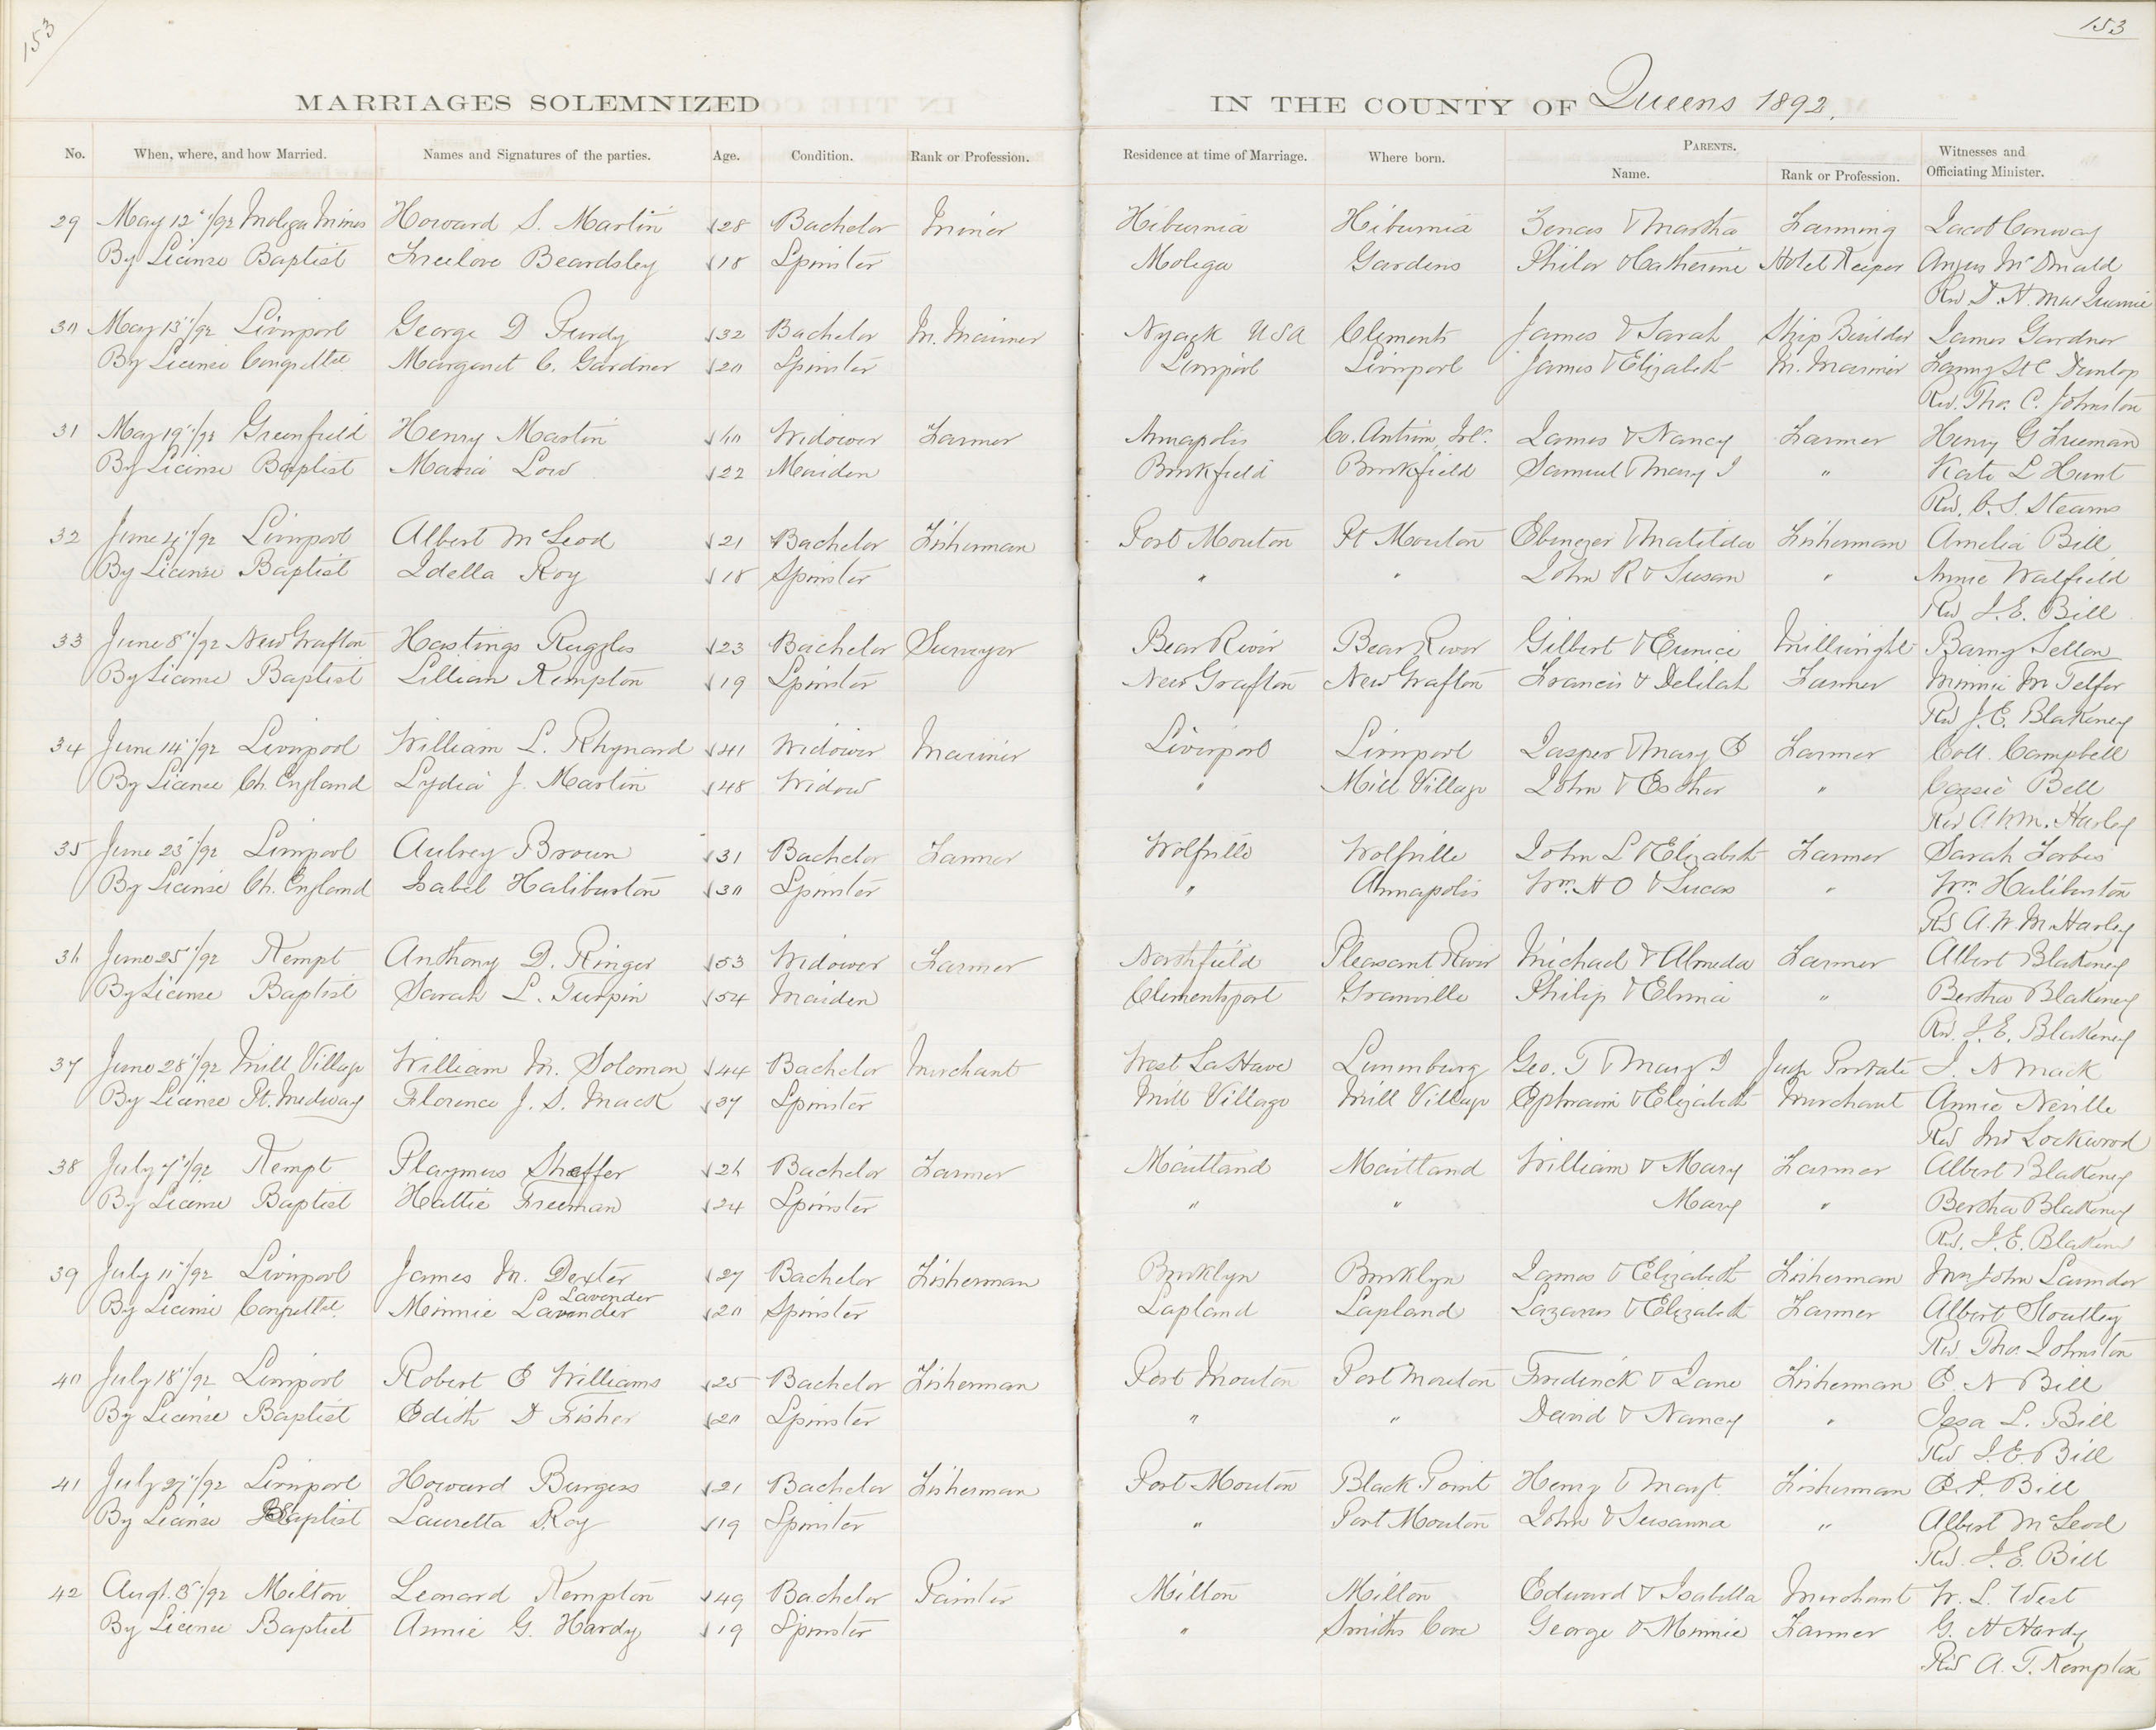 153
153
MARRIAGES SOLEMNIZED IN THE COUNTY OF Queens 1892.
No. When, where, and how Married. Names and Signatures of the parties. Age. Condition. Rank or Profession. Residence at time of Marriage. Where born. PARENTS. Name. Rank or Profession. Witnesses and Officiating Minister.
29 May 12"/92 Molega Mines Howard S. Martin 28 Bachelor Miner Hibernia Hibernia Zenas & Martha Farming Jacob Conway
By License Baptist Freelove Beardsley 18 Spinster Molega Gardens Philor & Catherine Hotel Keeper Angus McDonald
Rev D. H. MacQuarrie
30 May 13"/92 Liverpool George D Purdy 32 Bachelor M. Mariner Nyack USA Clements James & Sarah Ship Builder James Gardner
By License Congtl Margaret C. Gardner 20 Spinster Liverpool Liverpool James & Elizabeth M. Mariner Fanny St C Dunlop
Rev. Tho. C. Johnston
31 May 19"/92 Greenfield Henry Martin 60 Widower Farmer Annapolis Co. Antrim, Irl. James & Nancy Farmer Henry G Freeman
By License Baptist Maria Low 22 Maiden Brookfield Brookfield Samuel & Mary J " Kate L Hunt
Rev. C. S. Stearns
32 June 4"/92 Liverpool Albert McLeod 21 Bachelor Fisherman Port Mouton Pt Mouton Ebenezer & Matilda Fisherman Amelia Bill
By License Baptist Idella Roy 18 Spinster " " John R & Susan " Annie Walfield
Rev I. E. Bill
33 June 8"/92 New Grafton Hastings Ruggles 23 Bachelor Surveyor Bear River Bear River Gilbert & Eunice Millwright Barny Sellon
By License Baptist Lillian Kempton 19 Spinster New Grafton New Grafton Francis & Delilah Farmer Minnie M Telfer
Rev J. E. Blakeney
34 June 14"/92 Liverpool William L. Rhynard 41 Widower Mariner Liverpool Liverpool Jasper & Mary E Farmer Coll. Campbell
By License Ch. England Lydia J. Martin 48 Widow " Mill Village John & Esther " Cassie Bell
Rev A W M. Harley
35 June 23"/92 Liverpool Aubrey Brown 31 Bachelor Farmer Wolfville Wolfville John L & Elizabeth Farmer Sarah Forbes
By License Ch. England Isabel Haliburton 30 Spinster " Annapolis Wm. H O & Lucas " Wm. Haliburton
Rev A. W. M. Harley
36 June 25"/92 Kempt Anthony D. Ringer 53 Widower Farmer Northfield Pleasant River Michael & Almeda Farmer Albert Blakeney
By License Baptist Sarah L. Turpin 54 Maiden Clementsport Granville Philip & Elmia " Bertha Blakeney
Rev. J. E. Blakeney
37 June 28"/92 Mill Village William M. Solomon 44 Bachelor Merchant West LaHave Lunenburg Geo. T & Mary J Judge Probate J. N Mack
By License Pt. Medway Florence J. S. Mack 37 Spinster Mill Village Mill Village Ephraim & Elizabeth Merchant Annie Neville
Rev Jno Lockwood
38 July 7"/92 Kempt Playmers Sheffer 26 Bachelor Farmer Maitland Maitland William & Mary Farmer Albert Blakeney
By License Baptist Hattie Freeman 24 Spinster " " Mary " Bertha Blakeney
Rev. J. E. Blakeney
39 July 11"/92 Liverpool James M. Dexter 27 Bachelor Fisherman Brooklyn Brooklyn James & Elizabeth Fisherman Mrs John Launder
Lavender
By License Congtl. Minnie Lavender 20 Spinster Lapland Lapland Lazarus & Elizabeth Farmer Albert Stoutley
Rev Tho. Johnston
40 July 18"/92 Liverpool Robert E Williams 25 Bachelor Fisherman Port Mouton Port Mouton Frederick & Jane Fisherman E. N Bill
By License Baptist Edith D Fisher 20 Spinster " " David & Nancy " Issa L. Bill
Rev I. E. Bill
41 July 27"/92 Liverpool Howard Burgess 21 Bachelor Fisherman Port Mouton Black Point Henry & Margt. Fisherman E. N. Bill
By License Baptist Lauretta Roy 19 Spinster " Port Mouton John & Susanna " Albert McLeod
Rev. I. E. Bill
42 Augt. 3"/92 Milton Leonard Kempton 49 Bachelor Painter Milton Milton Edward & Isabella Merchant W. L. West
By License Baptist Annie G. Hardy 19 Spinster " Smiths Cove George & Minnie Farmer G. H Hardy
Rev A. T. Kempton